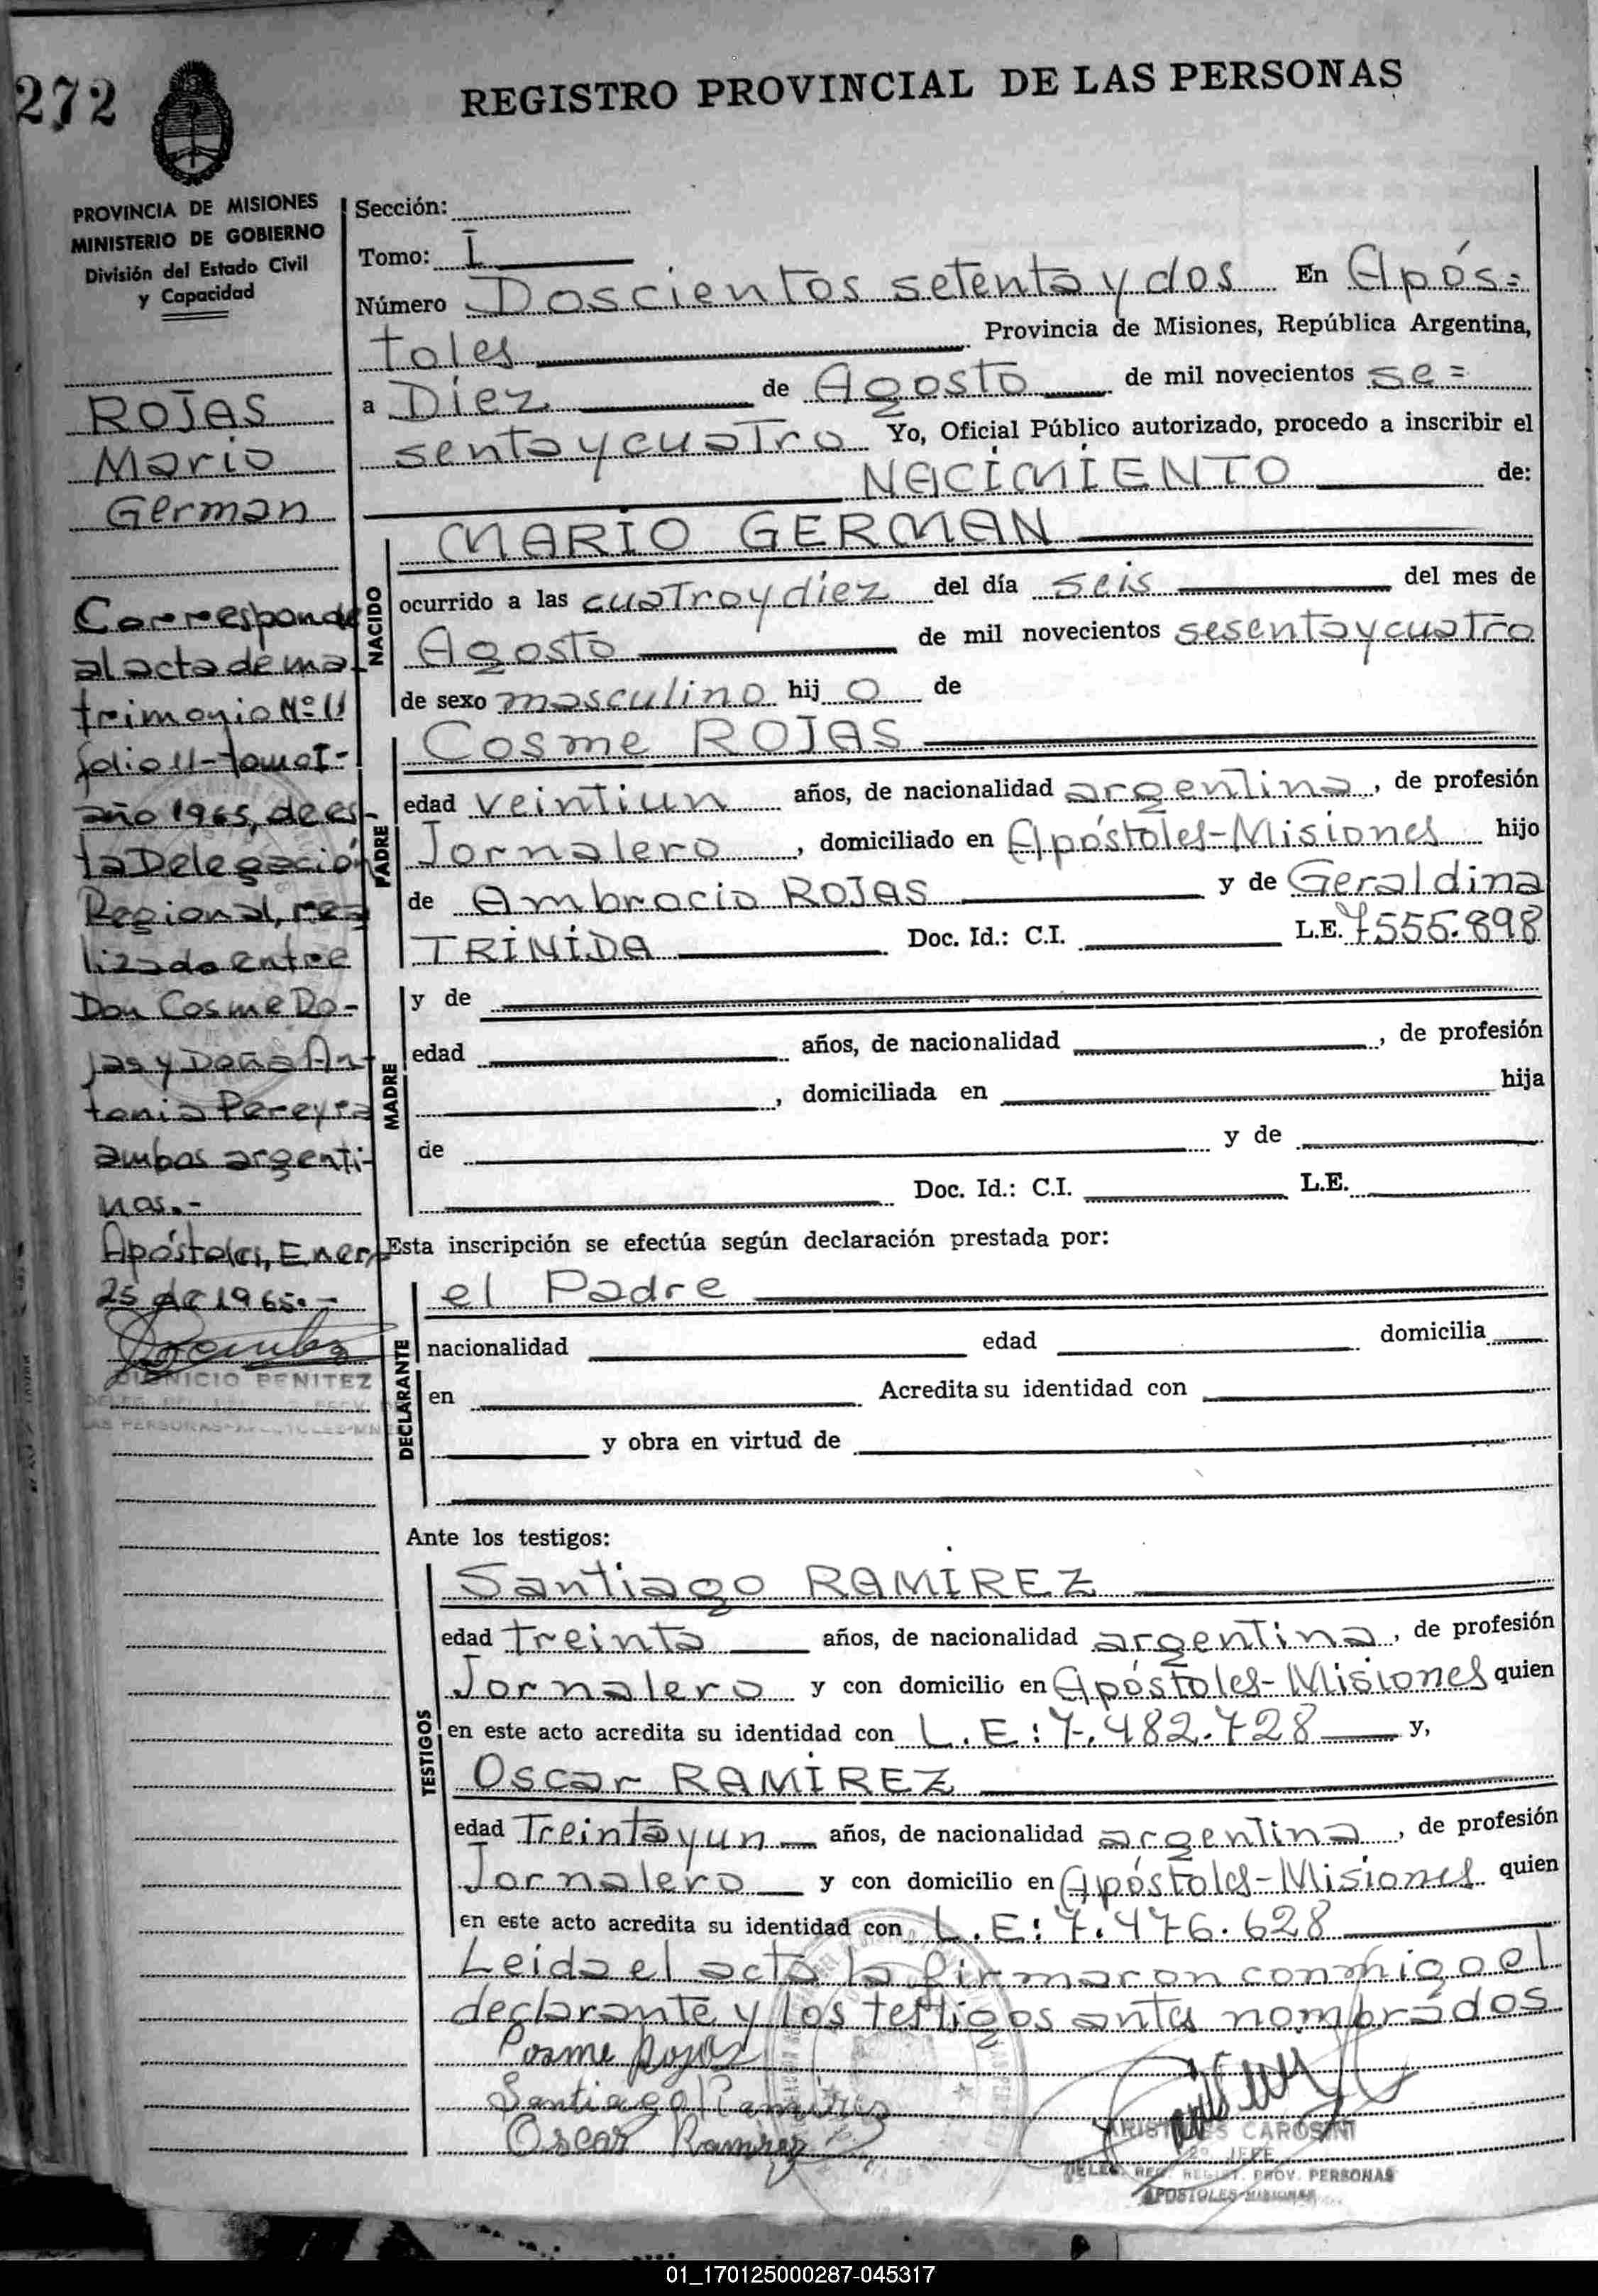 272
REGISTRO PROVINCIAL DE LAS PERSONAS
PROVINCIA DE MISIONES
MINISTERIO DE GOBIERNO
División del Estado Civil
y Capacidad
ROJAS
Mario
German
Corresponde
al acta de ma-
trimonio Nº 11
folio 11-tomo I-
año 1965, de es-
ta Delegación
Regional, rea
lizado entre
Don Cosme Ro-
jas y Doña An-
tonia Pereyra
ambos argenti-
nos.-
Apóstoles, Enero
25 de 1965.-
DIONICIO BENITEZ
LAS PERSONAS-APOSTOLES-MNES
Sección:
Tomo: I
Número Doscientos setenta y dos En Após=
toles Provincia de Misiones, República Argentina,
a Diez de Agosto de mil novecientos se=
senta y cuatro Yo, Oficial Público autorizado, procedo a inscribir el
NACIMIENTO de:
NACIDO
MARIO GERMAN
ocurrido a las cuatro y diez del día seis del mes de
Agosto de mil novecientos sesenta y cuatro
de sexo masculino hij o de
PADRE
Cosme ROJAS
edad veintiun años, de nacionalidad argentina, de profesión
Jornalero, domiciliado en Apóstoles-Misiones hijo
de Ambrocio ROJAS y de Geraldina
TRINIDA Doc. Id.: C.I. L.E. 7555.898
MADRE
y de
edad años, de nacionalidad , de profesión
, domiciliada en hija
de y de
Doc. Id.: C.I. L.E.
Esta inscripción se efectúa según declaración prestada por:
DECLARANTE
el Padre
nacionalidad edad domicilia
en Acredita su identidad con
y obra en virtud de
Ante los testigos:
TESTIGOS
Santiago RAMIREZ
edad treinta años, de nacionalidad argentina, de profesión
Jornalero y con domicilio en Apóstoles-Misiones quien
en este acto acredita su identidad con L.E: 7.482.728 y,
Oscar RAMIREZ
edad Treinta y un años, de nacionalidad argentina, de profesión
Jornalero y con domicilio en Apóstoles-Misiones quien
en este acto acredita su identidad con L.E: 7.476.628
Leida el acta la firmaron conmigo el
declarante y los testigos antes nombrados
Cosme Rojas
Santiago Ramirez
Oscar Ramirez
ARISTIDES CAROSINI
2º JEFE
DELEG. REG. REGIST. PROV. PERSONAS
APOSTOLES-MISIONES
01_170125000287-045317